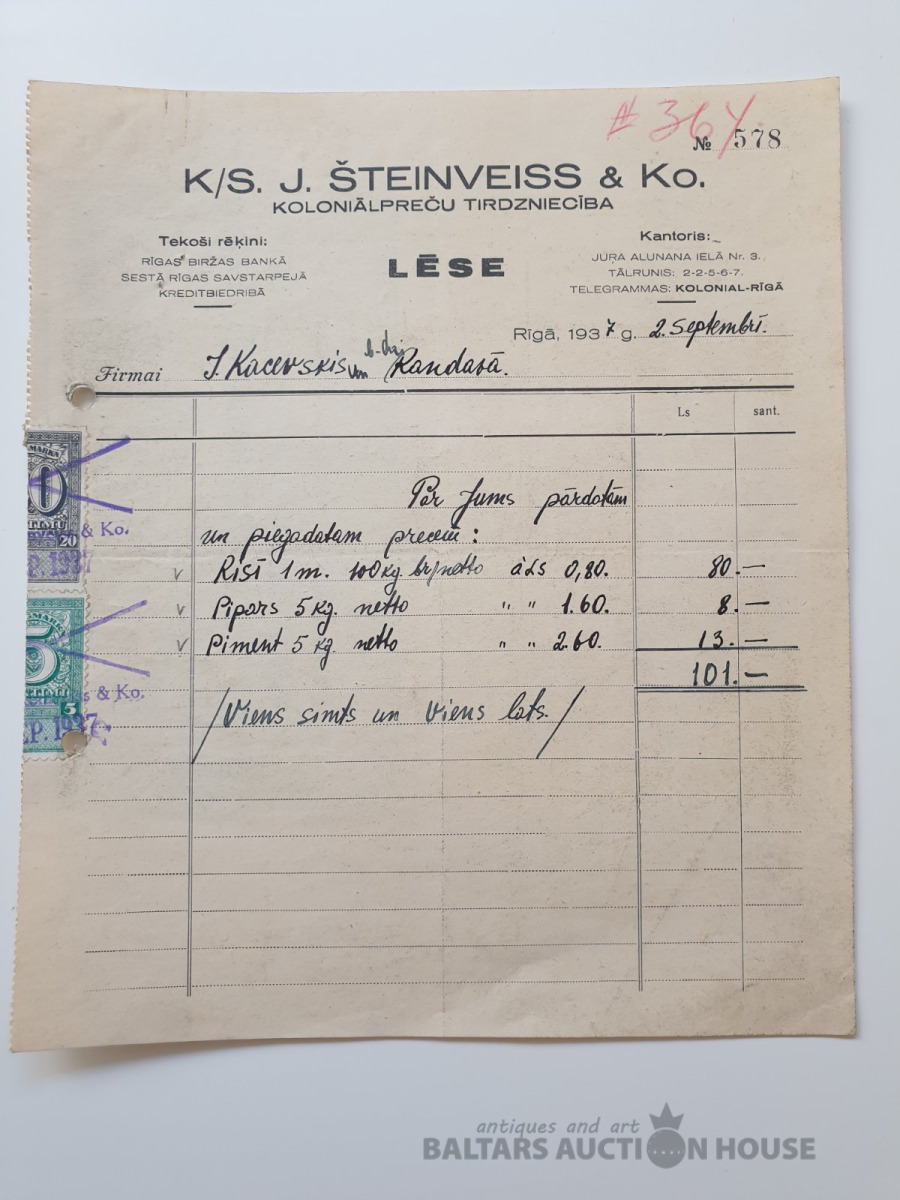 # 364
№ 578
K/S. J. ŠTEINVEISS & Ko.
KOLONIĀLPREČU TIRDZNIECĪBA
Tekoši rēķini:
RĪGAS BIRŽAS BANKĀ
SESTĀ RĪGAS SAVSTARPEJĀ
KREDITBIEDRIBĀ
LĒSE
Kantoris:
JURA ALUNANA IELĀ Nr. 3.
TĀLRUNIS: 2-2-5-6-7.
TELEGRAMMAS: KOLONIAL-RĪGĀ
Rīgā, 1937 g. 2. Septembrī.
Firmai J. Kacevskis un b-dri Kandavā.
Ls sant.
Par Jums pārdotām
un piegādatam precēm:
Risī 1 m. 100 kg. br/netto à Ls 0,80. 80.—
Pipars 5 kg. netto " " 1.60. 8.—
Piment 5 kg. netto " " 2.60. 13.—
101.—
/Viens simts un viens lats./
MARKA
20
& Ko.
P. 1937
5
5
& Ko.
P. 1937
antiques and art
BALTARS AUCTION HOUSE